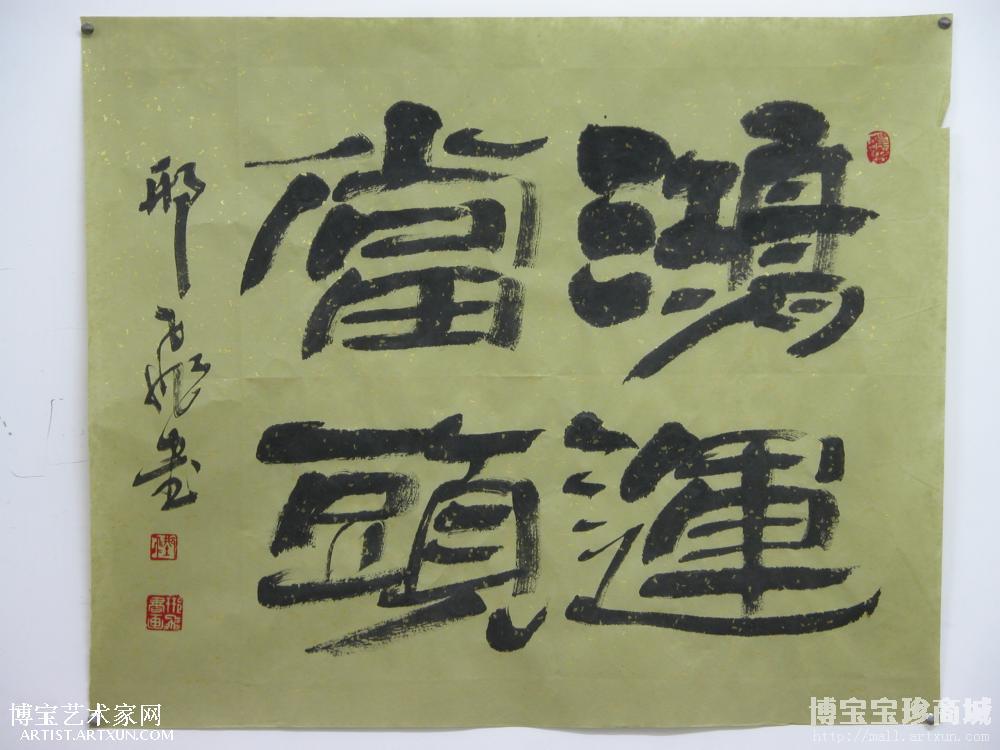 鴻運
當頭
博宝艺术家网
ARTIST.ARTXUN.COM
博宝宝珍商城
http://mall.artxun.com